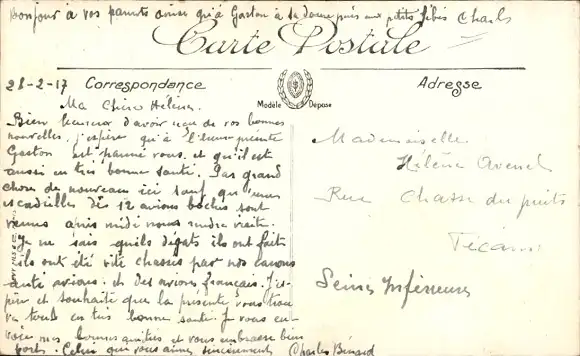 Bonjour à vos parents ainsi qu'à Gaston à sa dame puis aux petits bébés Charles
Carte Postale
28-2-17 Correspondance
Adresse
Modèle Déposé
Ma Chère Hélène.
Bien heureux d'avoir reçu de vos bonnes
nouvelles. j'espère qu'à l'heure présente
Gaston est parmi vous. et qu'il est
aussi en très bonne santé. Pas grand
chose de nouveau ici sauf que
escadrilles des 12 avions boches sont
venus après midi nous rendre visite.
Je ne sais quels dégats ils ont faits
ils ont été vite chassés par nos canons
anti avions. et des avions français. J'es-
père et souhaite que la présente vous trou-
ve tous en très bonne santé. Je vous en
voie mes bonnes amitiés et vous embrasse bien
fort. Celui qui vous aime sincèrement Charles Bénard
Mademoiselle
Hélène
Rue Chasse du puits
Fécamp
Seine Inférieure